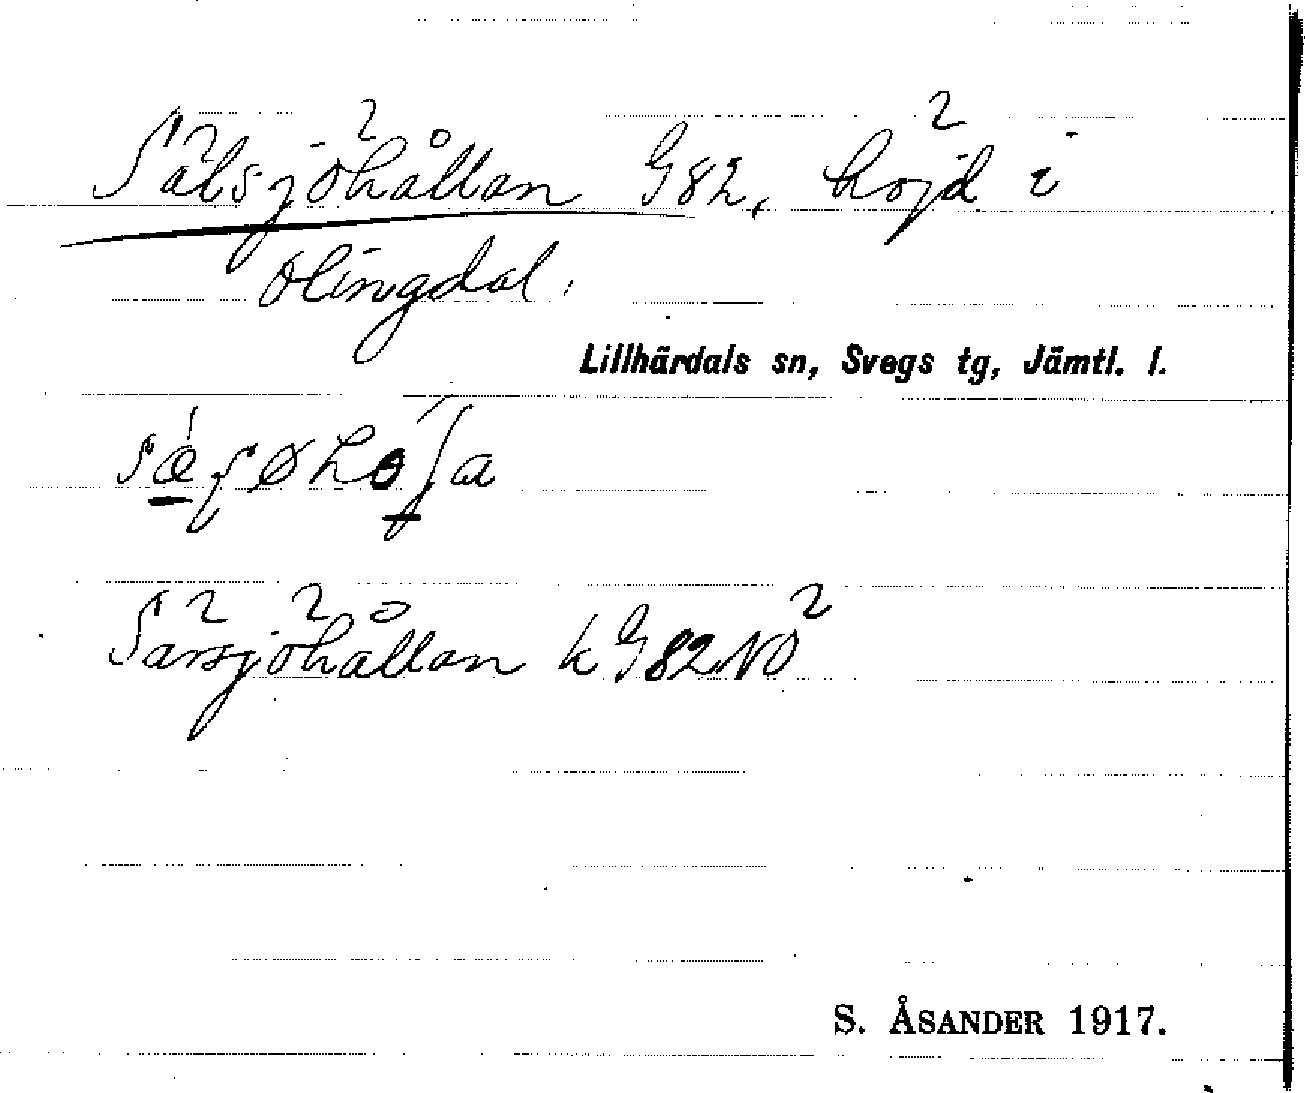 Sälsjöhållan G82, höjd i
Olingdal.
Lillhärdals sn, Svegs tg, Jämtl. l.
Särsjöhållan k G82NÖ
S. ÅSANDER 1917.